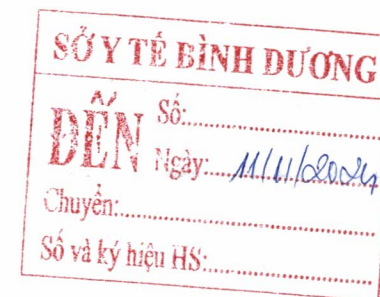 SỞ Y TẾ BÌNH DƯƠNG
ĐẾN
Số:
Ngày: 11/11/2024
Chuyển:
Số và ký hiệu HS: